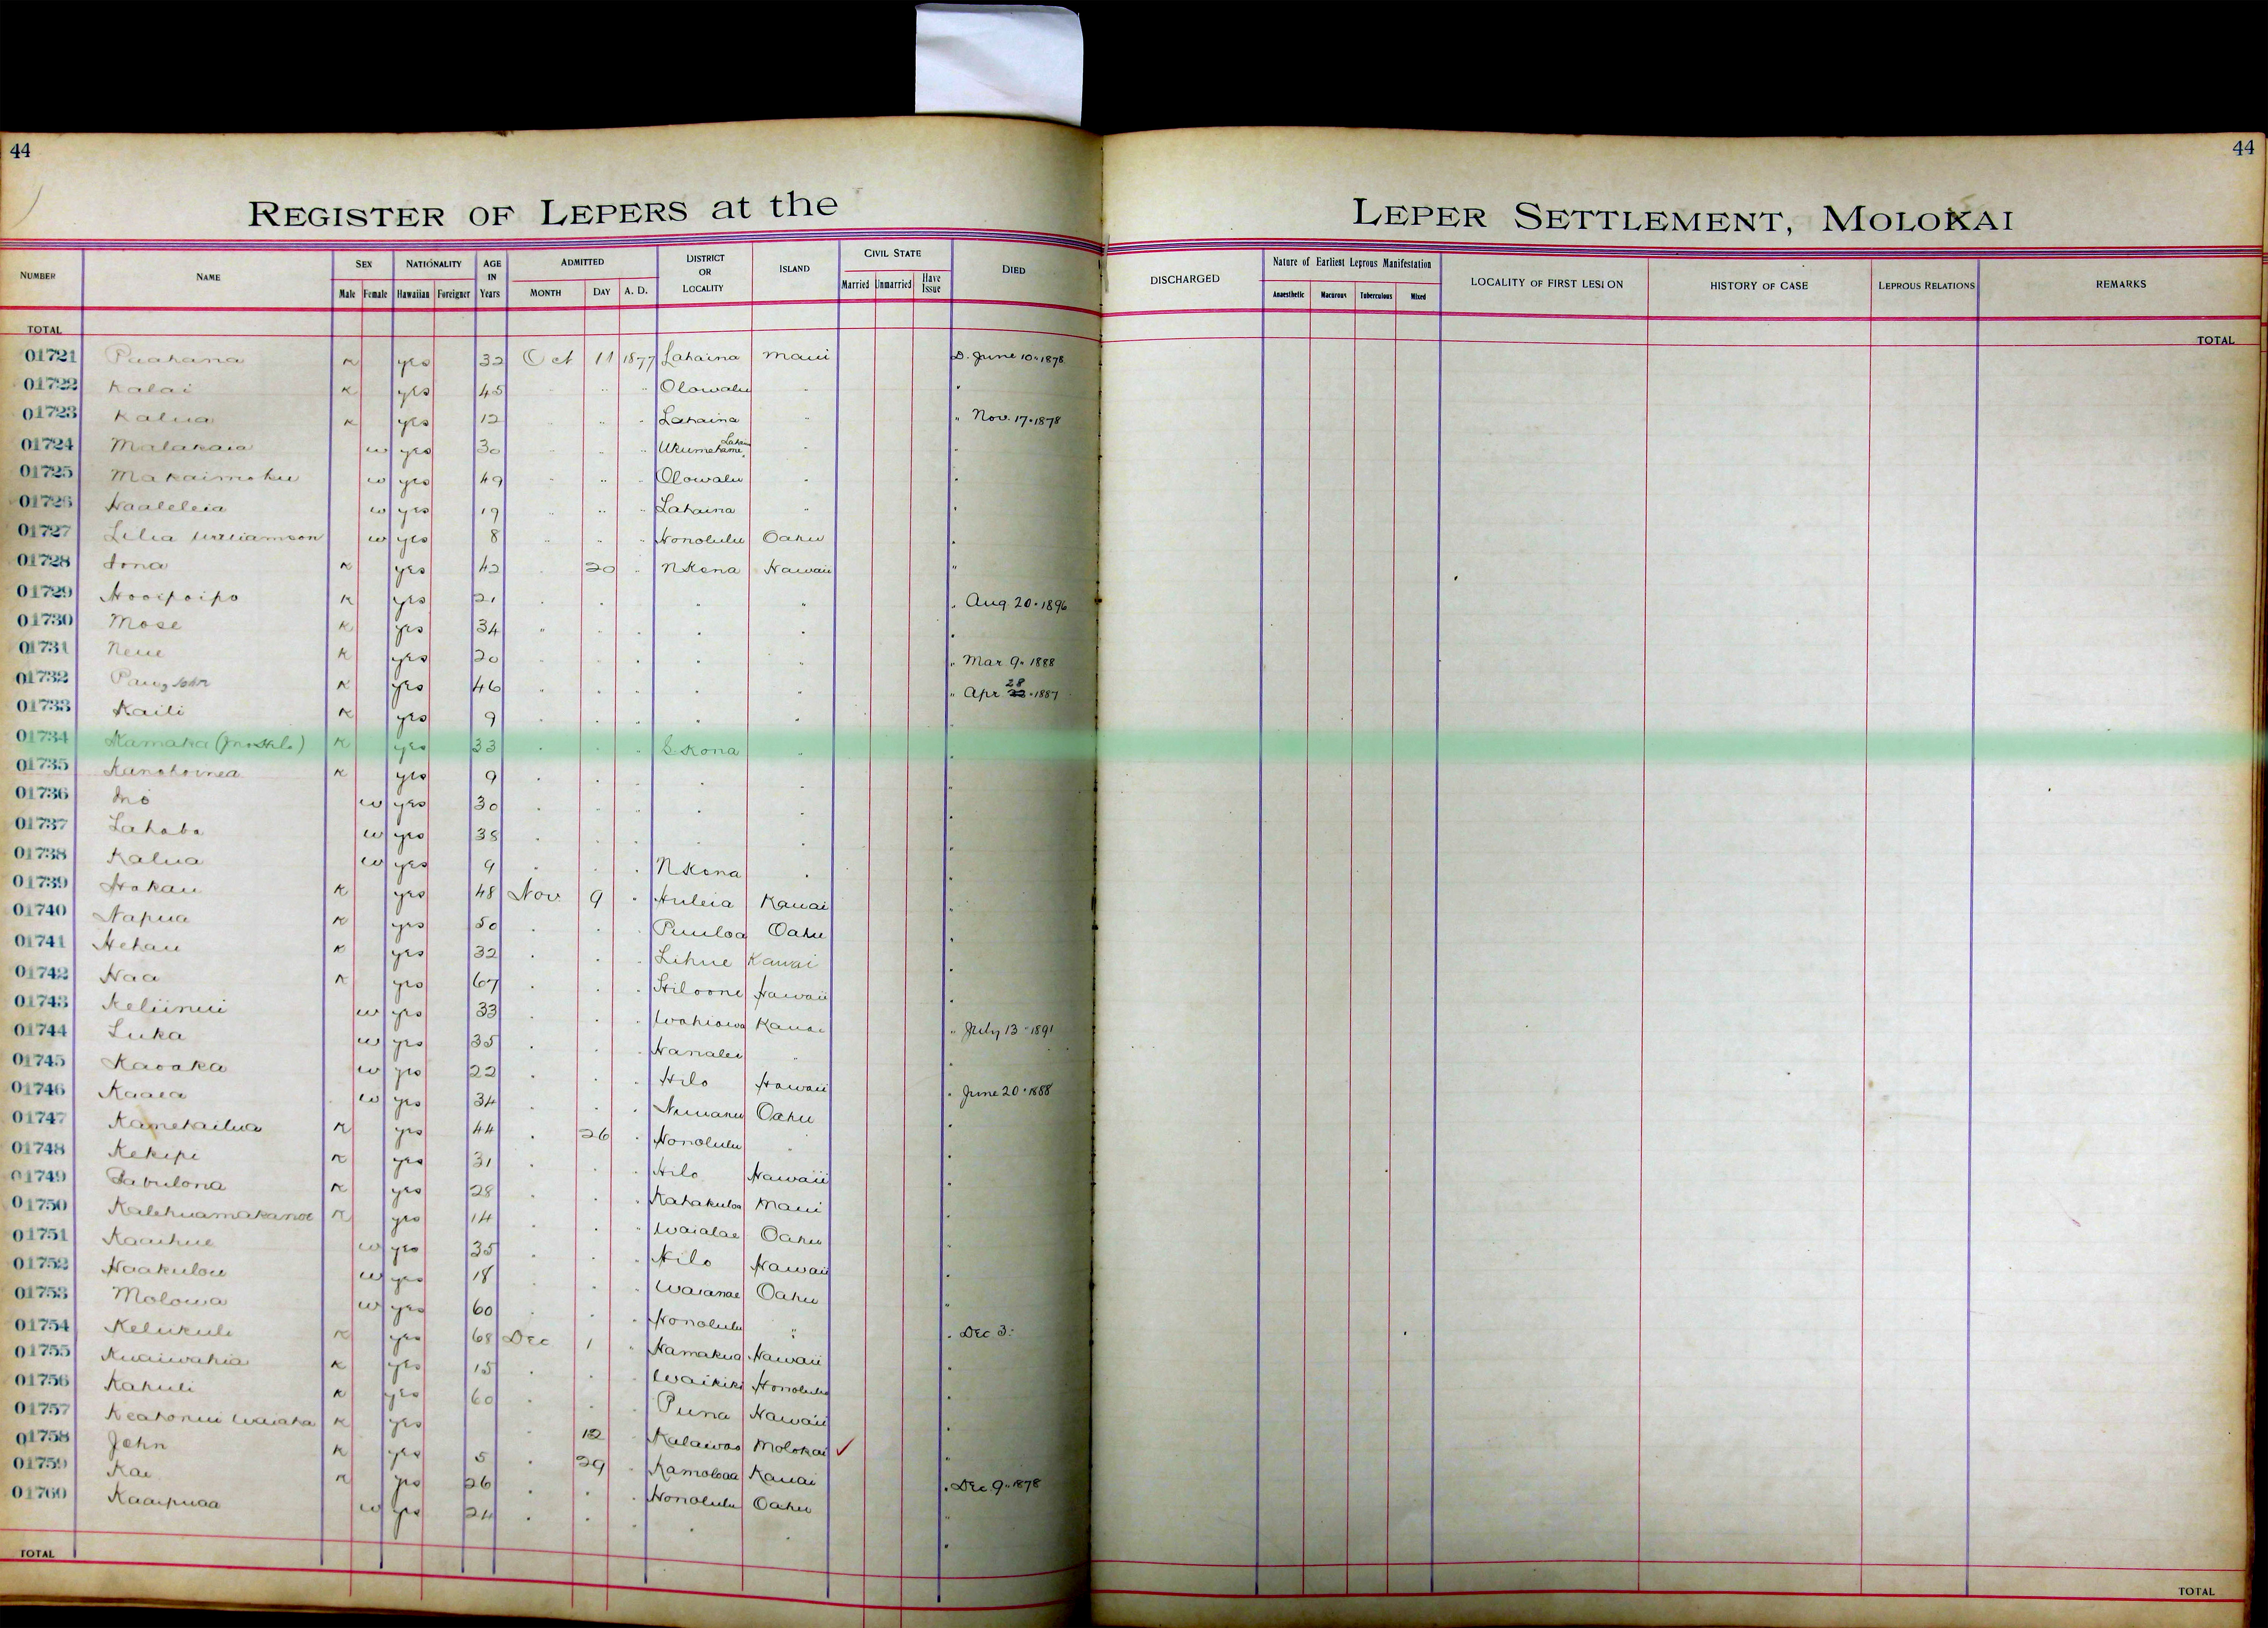 44
44
REGISTER OF LEPERS at the
LEPER SETTLEMENT, MOLOKAI
NUMBER NAME SEX Male Female NATIONALITY Hawaiian Foreigner AGE IN Years ADMITTED MONTH DAY A. D. DISTRICT OR LOCALITY ISLAND CIVIL STATE Married Unmarried Have Issue DIED
DISCHARGED Nature of Earliest Leprous Manifestation Anaesthetic Macurous Tuberculous Mixed LOCALITY OF FIRST LESION HISTORY OF CASE LEPROUS RELATIONS REMARKS
TOTAL
TOTAL
01721 Puahana K yes 32 Oct 11 1877 Lahaina Maui D. June 10 " 1878
01722 Kalai K yes 45 " " " Olowalu " "
01723 Kalua K yes 12 " " " Lahaina " " Nov. 17 " 1878
01724 Malakaia w yes 30 " " " Ukumehame " "
01725 Makaimoku w yes 49 " " " Olowalu " "
01726 Haaleleia w yes 19 " " " Lahaina " "
01727 Lilia Williamson w yes 8 " " " Honolulu Oahu "
01728 Iona K yes 42 " 20 " N Kona Hawaii "
01729 Hooipoipo K yes 21 " " " " " " Aug. 20 " 1896
01730 Mose K yes 34 " " " " " "
01731 Neue K yes 20 " " " " " " Mar 9 " 1888
01732 John K yes 46 " " " " " " Apr 28 " 1887
01733 Kaili K yes 9 " " " " "
01734 Kamaka K yes 33 " " " S. Kona " "
01735 K yes 9 " " " " " "
01736 w yes 30 " " " " " "
01737 Lahaba w yes 38 " " " " " "
01738 Kalua w yes 9 " " " N Kona " "
01739 Hokau K yes 48 Nov 9 " Huleia Kauai "
01740 Napua K yes 50 " " " Puuloa Oahu "
01741 Hehau K yes 32 " " " Lihue Kauai "
01742 Naa K yes 67 " " " Hiloone Hawaii "
01743 Keliinui w yes 33 " " " Wahiawa Kauai " July 13 " 1891
01744 Luka w yes 35 " " " Hanalei " "
01745 Kaoaka w yes 22 " " " Hilo Hawaii " June 20 " 1888
01746 Kaaea w yes 34 " " " Nuuanu Oahu "
01747 Kamekailua K yes 44 " 26 " Honolulu " "
01748 Kekipi K yes 31 " " " Hilo Hawaii "
01749 Zabulona K yes 28 " " " Kahakuloa Maui "
01750 Kalehuamakanoe K yes 14 " " " Waialae Oahu "
01751 Kaaihue w yes 35 " " " Hilo Hawaii "
01752 Haakulou w yes 18 " " " Waianae Oahu "
01753 Molowa w yes 60 " " " Honolulu " " Dec 3.
01754 Kelukuli K yes 68 Dec 1 " Hamakua Hawaii "
01755 Kuaiwahia K yes 15 " " " Waikiki Honolulu "
01756 Kahuli K yes 60 " " " Puna Hawaii "
01757 Keahonui Waiaha K yes " 12 " Kalawao Molokai ✓ "
01758 John K yes 5 " 29 " Kamoloaa Kauai " Dec 9 " 1878
01759 Kai K yes 26 " " " Honolulu Oahu "
01760 Kaaipuaa w yes 24 " " " " " "
TOTAL
TOTAL